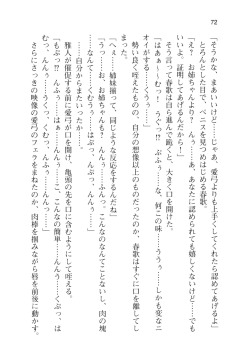 72
「そうかな、まぁいいけど……じゃあ、愛弓よりも上手くしてくれたら認めてあげるよ」
とろんとした目で、ペニスを見つめはじめる春歌。
「お、お姉ちゃんより？　んぅ……あ、あなたに認められても嬉しくないけど……でも、
いいよ、証明してあげるんだからっ！」
そう言って春歌は歩み進んで跪くと、大きく口を開けた。
「はあぁぁ……むっっ？　うぐっっ、ぷふぅっっ……な、何この味……ううぅ……しかも変なニ
オイがする……くううぅ……」
勢い良く咥えたものの、自分の想像以上のものだったのか、春歌はすぐに口を離してし
まった。
「……姉妹揃って、同じような反応をするんだね」
「うっ……お、お姉ちゃんも？　んぅ、こ、このくらいなんてことないし、肉の塊
……なんてっ……くむぅっ……んむぅぅっ……」
……自分からまたいったか……。
雅人が催促する前に愛弓が口を開け、亀頭の先を口に含むようにして咥える。
「もぷっ……はぁぁっ、こんなの簡単……んんぅっ……んふぅ……くぷっ、は
むっ、んふっ、んふぅ……」
さらにさっきの映像の愛弓のフェラをまねたのか、肉棒を掴みながら唇を前後に動かす。